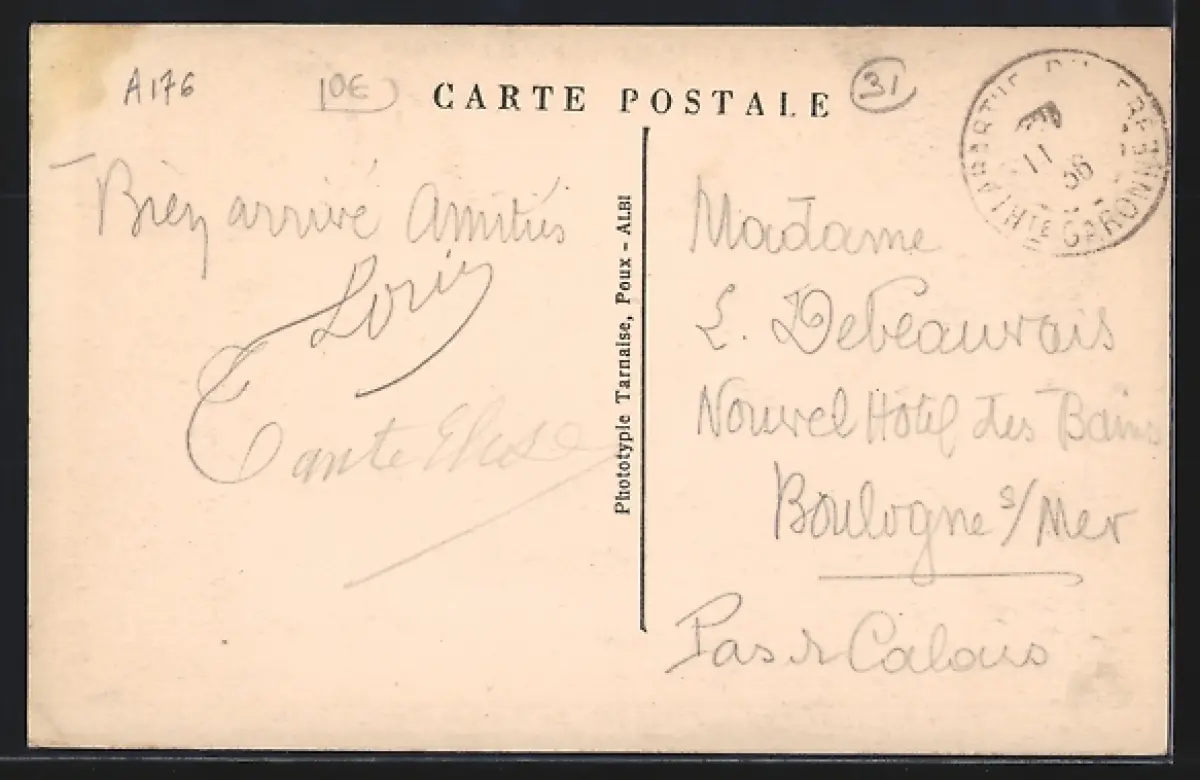 A176
10€
CARTE POSTALE
31
HTE GARONNE
11
56
Bien arrivé Amitiés
Tante Elise
Phototypie Tarnaise, Poux - ALBI
Madame
L. Debeauvais
Nouvel Hôtel des Bains
Boulogne s/Mer
Pas de Calais